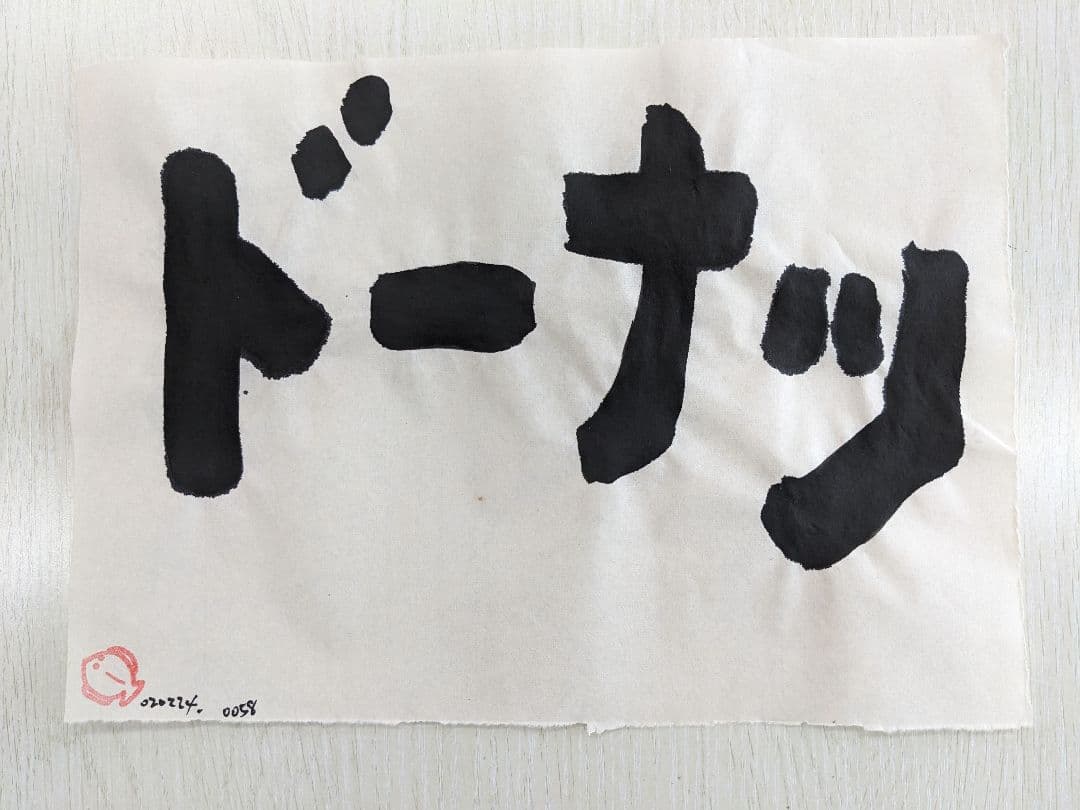 ドーナツ
020224. 0058